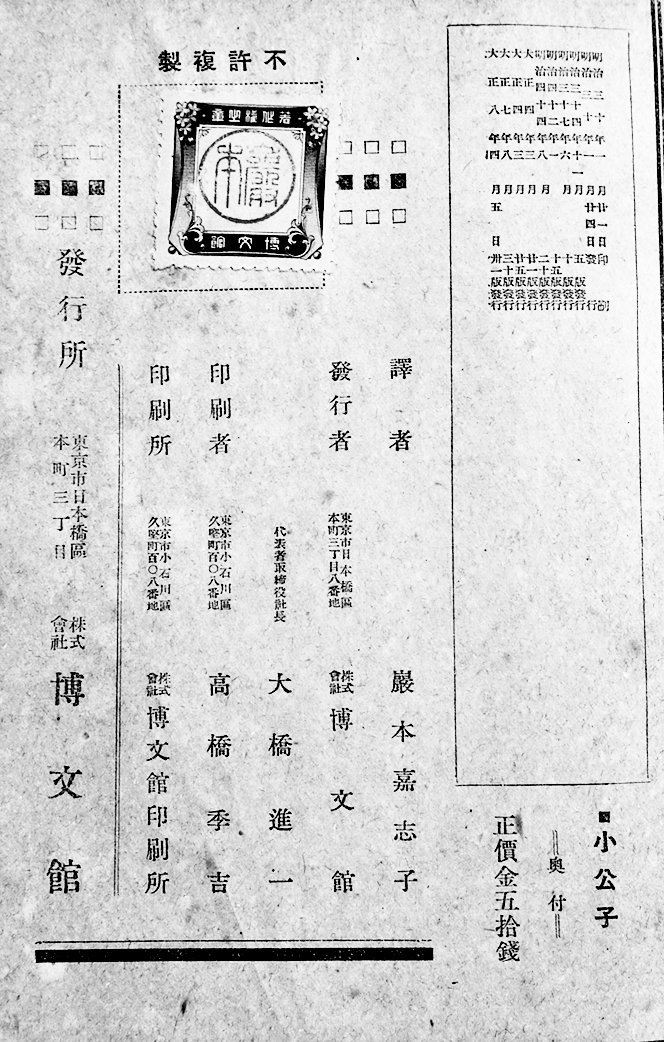 明治三十年一月廿一日印刷
明治三十年一月廿四日發行
明治三十四年十一月五版發行
明治三十七年六月十版發行
明治四十二年八月十五版發行
明治四十四年一月版發行
大正四年三月版發行
大正四年三月版發行
大正七年八月版發行
大正八年四月五日版發行
小公子
奥付
正價金五拾錢
不許複製
博文館
譯者 巖本嘉志子
發行者 東京市日本橋區本町三丁目八番地 株式會社 博文館
代表者取締役社長 大橋進一
印刷者 東京市小石川區久堅町百〇八番地 高橋季吉
印刷所 東京市小石川區久堅町百〇八番地 株式會社 博文館印刷所
發行所 東京市日本橋區本町三丁目 株式會社 博文館